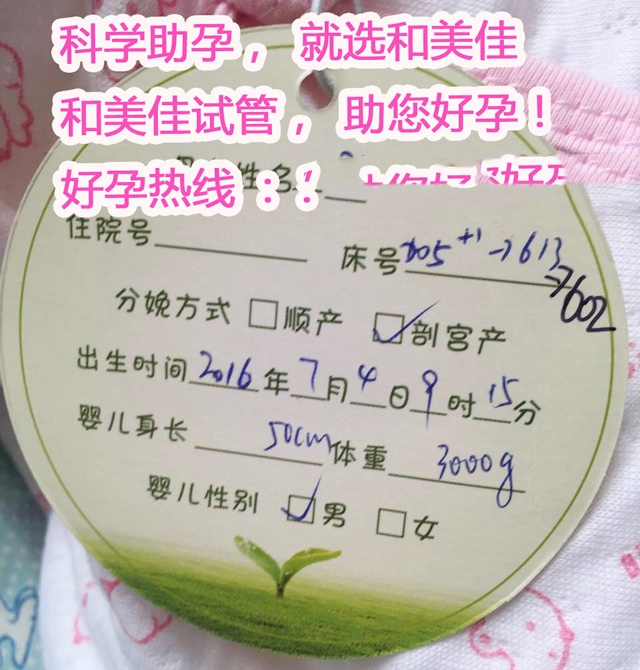 科学助孕， 就选和美佳
和美佳试管， 助您好孕！
好孕热线：
姓名
住院号 床号705+1→613
→602
分娩方式 □顺产 ☑剖宫产
出生时间2016年7月4日9时15分
婴儿身长 50cm 体重 3000g
婴儿性别 ☑男 □女